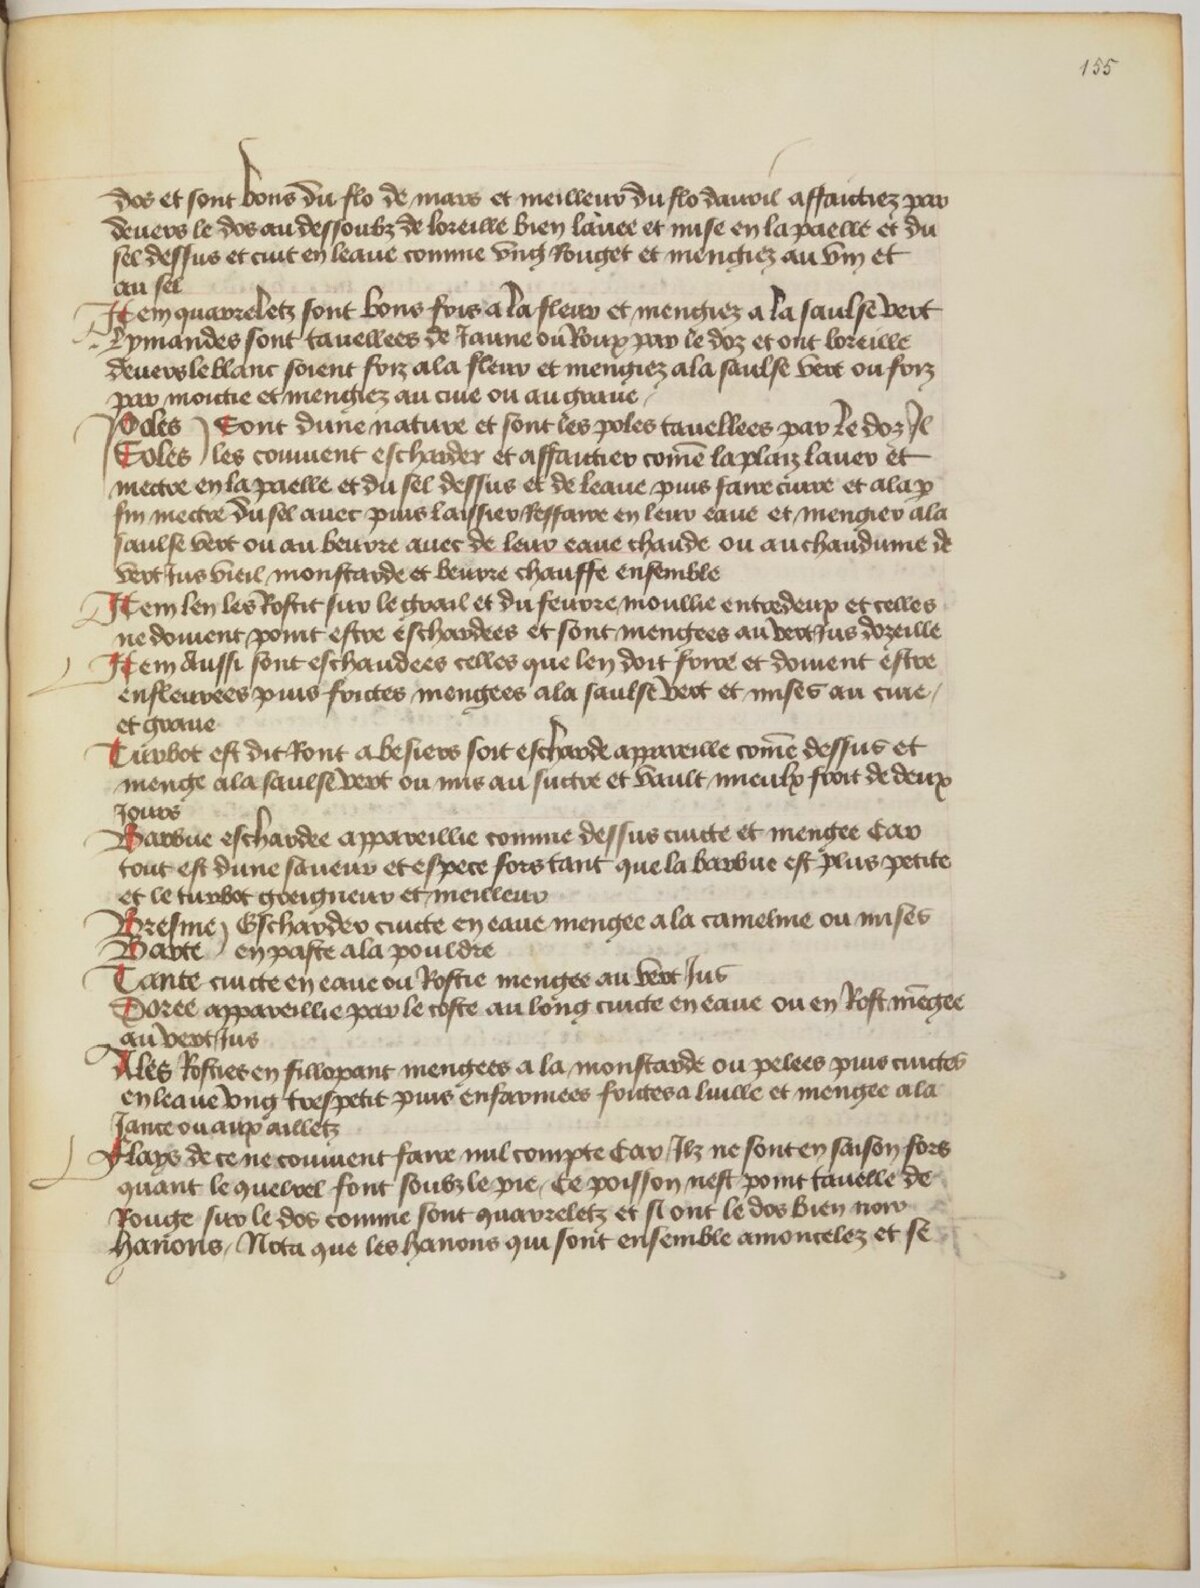 155
dos et sont bons du flo de mars et meilleur du flo dauril affaictiez par
deuers le dos au dessoubz de loreille bien lauee et mise en la paelle et du
sel dessus et cuit en leaue comme vng Rouget et mengiez au vin et
au sel
Item quarreletz sont bons fris a la fleur et mengiez a la saulse vert
Lymandes sont tauellees de Jaune ou Roux par le doz et ont loreille
deuers le blanc soient friz a la fleur et mengiez a la saulse vert ou friz
par moitie et mengiez au ciue ou au graue
Poles Sont dune nature et sont les poles tauellees par le doz Il
Soles les conuient escharder et affaitier come la plaiz lauer et
mectre en la paelle et du sel dessus et de leaue puis faire cuire et a la p
fin mectre du sel auec puis laissier Reffaire en leur eaue et mengier a la
saulse vert ou au beurre auec de leur eaue chaude ou au chaudume de
vert Jus vieil monstarde et beurre chauffe ensemble
Item len les Rostit sur le grail et du feurre moullie entredeux et celles
ne doiuent point estre eschardees et sont mengees au vert Jus dozeille
Item Aussi sont eschaudees celles que len doit frire et doiuent estre
enfleurees puis frictes mengees a la saulse vert et mises au ciue
et graue
Turbot est dit Ront a besiers soit escharde appareille come dessus et
menge a la saulse vert ou mis au succre et vault mieulx froit de deux
Jours
Barbue eschardee appareillie comme dessus cuicte et mengee Car
tout est dune saueur et espece fors tant que la barbue est plus petite
et le turbot greigneur et meilleur
Bresme Escharder cuicte en eaue mengee a la cameline ou mises
Barte en paste a la pouldre
Tante cuicte en eaue ou Rostie mengee au vert Jus
Doree appareillie par le coste au long cuicte en eaue ou en Rost megee
au vert Jus
Ales Rosties en fillopant mengees a la monstarde ou pelees puis cuictes
en leaue vng trespetit puis enfarinees frictes a luille et mengee a la
Jance ou aux ailletz
Flays de ce ne conuient faire nul compte Car Ilz ne sont en saison fors
quant le quelrel font soubz le pie Ce poisson nest point tauelle de
Rouge sur le dos comme sont quarreletz et si ont le dos bien noir
Hanons Nota que les hanons qui sont ensemble amoncelez et se